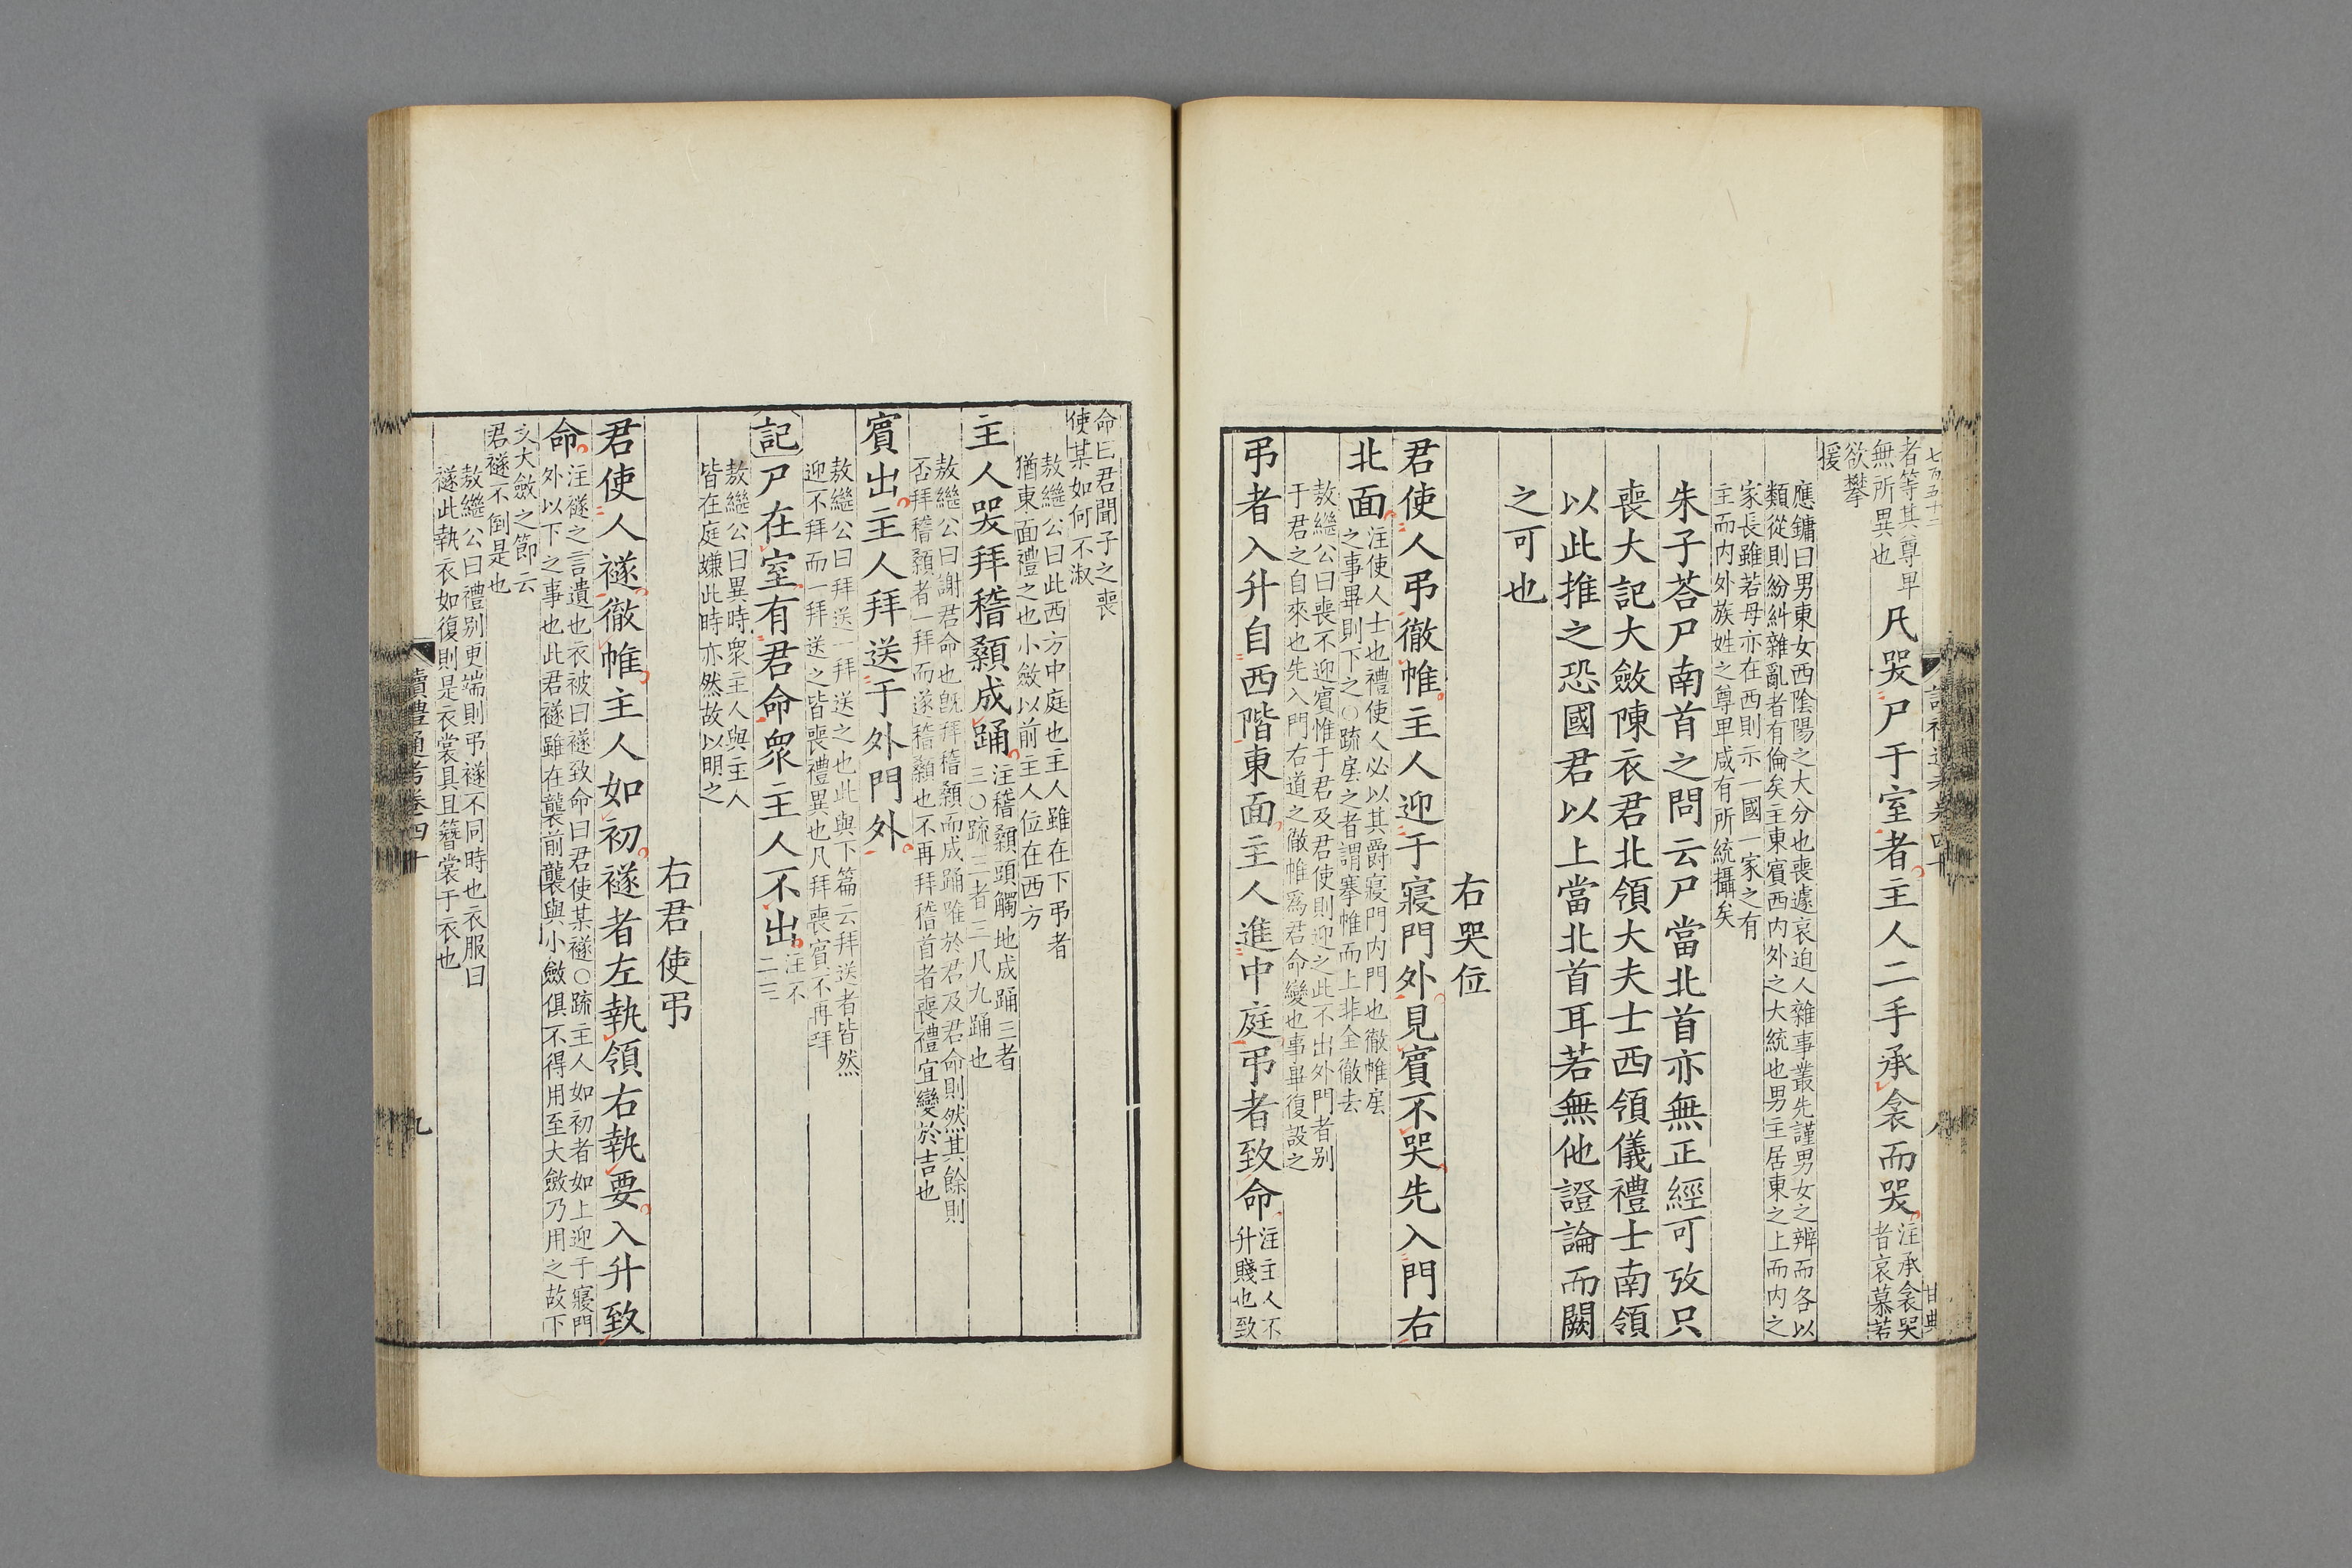 七百五十二
者等其尊卑
無所異也
凡哭尸于室者主人二手承衾而哭
注承衾哭
者哀慕若
欲攀
援
應鏞曰男東女西陰陽之大分也喪遽哀迫人雜事叢先謹男女之辨而各以
類從則紛糾雜亂者有倫矣主東賓西内外之大統也男主居東之上而内之
家長雖若母亦在西則示一國一家之有
主而内外族姓之尊卑咸有所統攝矣
朱子荅尸南首之問云尸當北首亦無正經可攷只
喪大記大斂陳衣君北領大夫士西領儀禮士南領
以此推之恐國君以上當北首耳若無他證論而闕
之可也
右哭位
君使人弔徹帷主人迎于寢門外見賓不哭先入門右
北面
注使人士也禮使人必以其爵寢門内門也徹帷㡿
之事畢則下之○疏㡿之者謂搴帷而上非全徹去
敖繼公曰喪不迎賓惟于君及君使則迎之此不出外門者别
于君之自來也先入門右道之徹帷爲君命變也事畢復設之
弔者入升自西階東面主人進中庭弔者致命
注主人不
升賤也致
命曰君聞子之喪
使某如何不淑
敖繼公曰此西方中庭也主人雖在下弔者
猶東面禮之也小斂以前主人位在西方
主人哭拜稽顙成踊
注稽顙頭觸地成踊三者
三○疏三者三凡九踊也
敖繼公曰謝君命也既拜稽顙而成踊雖於君及君命則然其餘則
否拜稽顙者一拜而遂稽顙也不再拜稽首者喪禮宜變於吉也
賓出主人拜送于外門外
敖繼公曰拜送一拜送之也此與下篇云拜送者皆然
迎不拜而一拜送之皆喪禮異也凡拜喪賓不再拜
記尸在室有君命衆主人不出
注不
二主
敖繼公曰異時衆主人與主人
皆在庭嫌此時亦然故以明之
右君使弔
君使人襚徹帷主人如初襚者左執領右執要入升致
命
注襚之言遺也衣被曰襚致命曰君使某襚○疏主人如初者如上迎于寢門
外以下之事也此君襚雖在襲前襲與小斂俱不得用至大斂乃用之故下
文大斂之節云
君襚不倒是也
敖繼公曰禮别更端則弔襚不同時也衣服曰
襚此執衣如復則是衣裳具且簪裳于衣也
讀禮通考卷四十
九